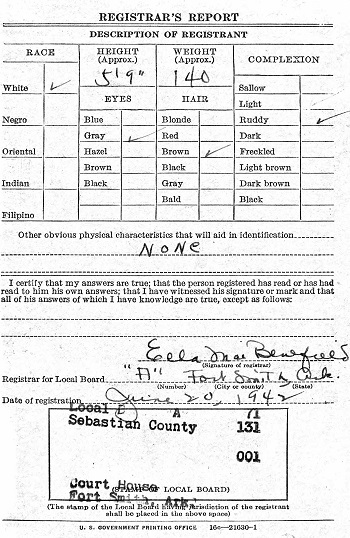 REGISTRAR'S REPORT
DESCRIPTION OF REGISTRANT
RACE HEIGHT (Approx.) WEIGHT (Approx.) COMPLEXION
5'9" 140
White ✓ Sallow
EYES HAIR Light
Negro Blue Blonde Ruddy ✓
Gray ✓ Red Dark
Oriental Hazel Brown ✓ Freckled
Brown Black Light brown
Indian Black Gray Dark brown
Bald Black
Filipino
Other obvious physical characteristics that will aid in identification
NONE
I certify that my answers are true; that the person registered has read or has had
read to him his own answers; that I have witnessed his signature or mark and that
all of his answers of which I have knowledge are true, except as follows:
Ella Mae Benefield
(Signature of registrar)
Registrar for Local Board "A" Fort Smith Ark.
(Number) (City or county) (State)
Date of registration June 20, 1942
Local B A 71
Sebastian County 131
001
Court House
(STAMP OF LOCAL BOARD)
Fort Smith, Ark.
(The stamp of the Local Board having jurisdiction of the registrant
shall be placed in the above space)
U. S. GOVERNMENT PRINTING OFFICE 16c—21630-1